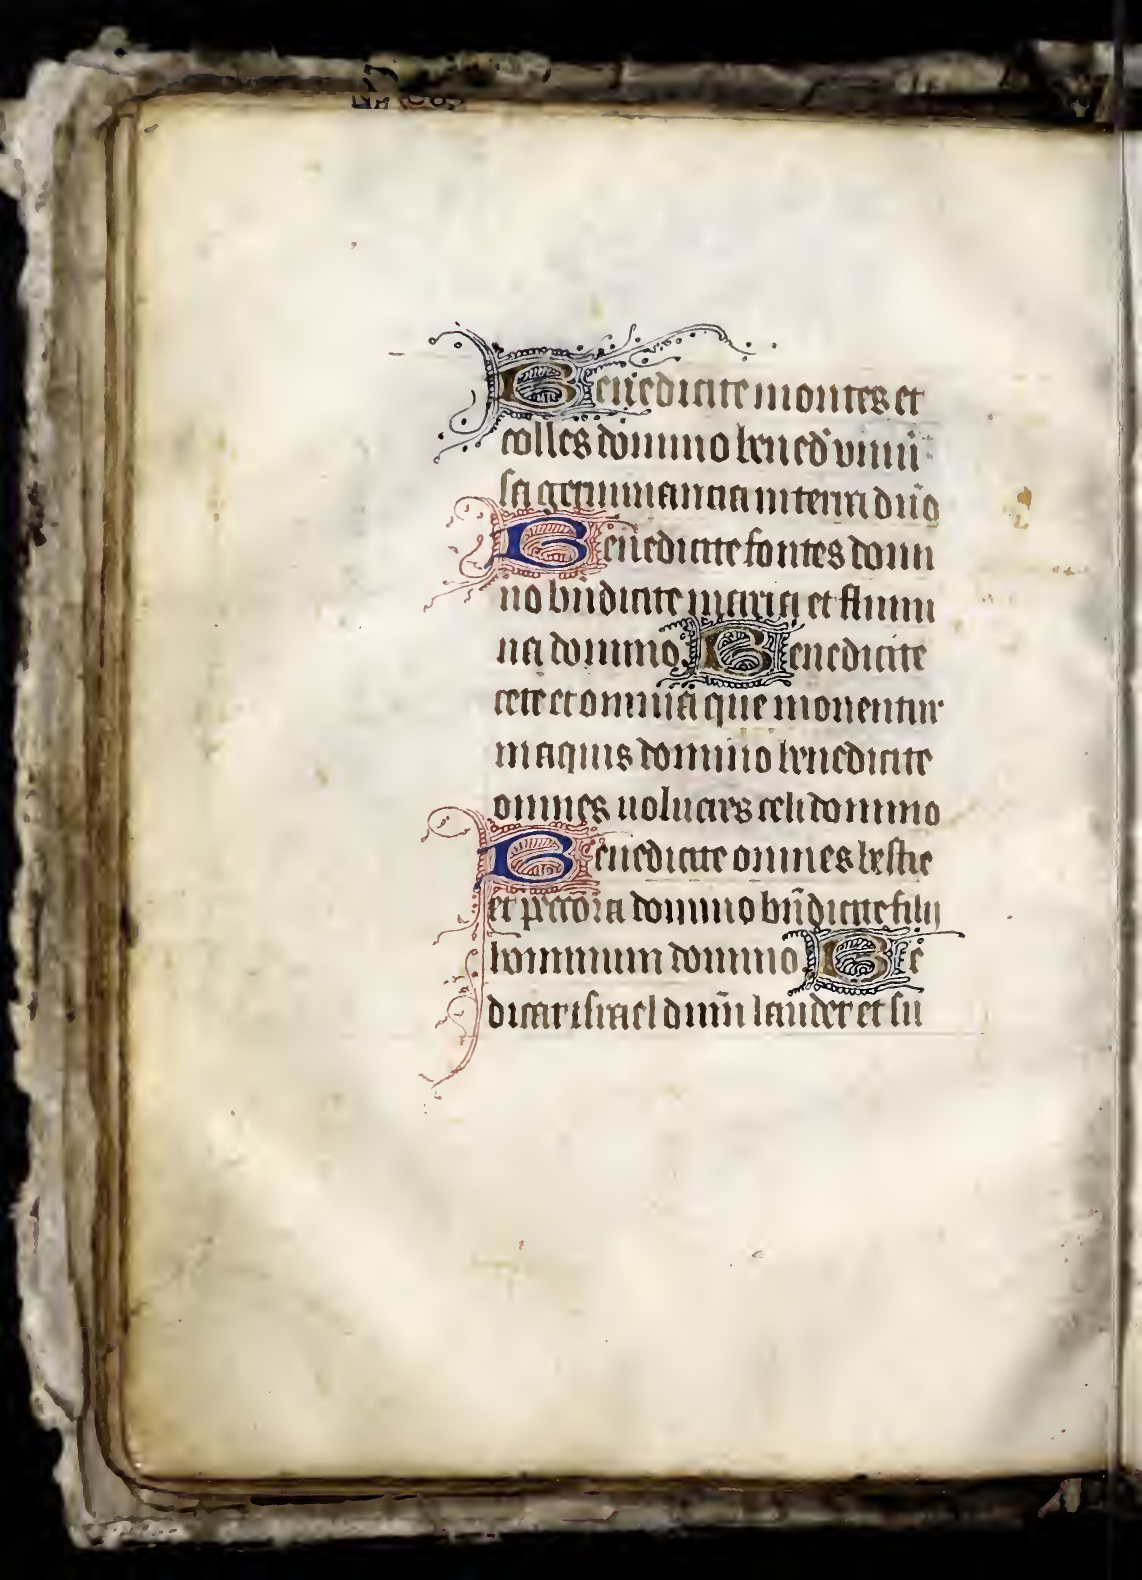 Benedicite montes et
colles domino bened' vniu
sa germinantia in terra dn̄o
Benedicite fontes domi
no bn̄dicite maria et flumi
na domino Benedicite
cete et omnia que mouentur
in aquis domino benedicite
omnes uolucres celi domino
Benedicite omnes bestie
et peccora domino bn̄dicite filij
hominum domino Be
dicat israel dnm̄ laudet et su